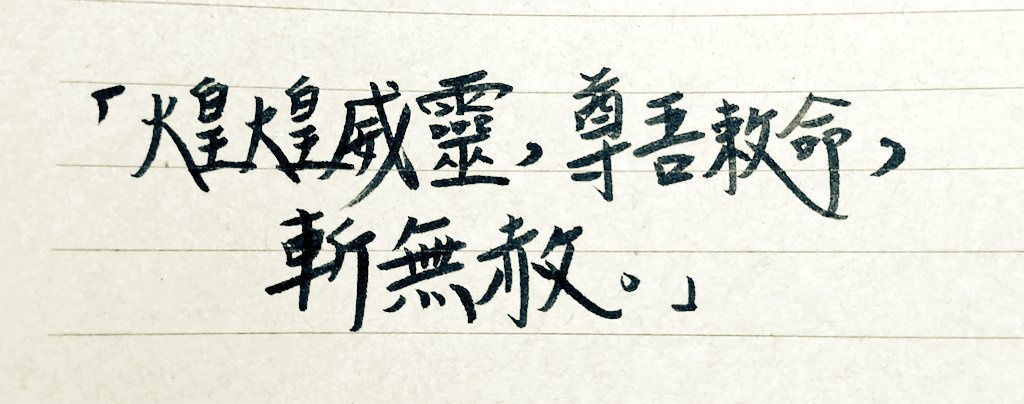 「煌煌威靈，尊吾敕命，
斬無赦。」